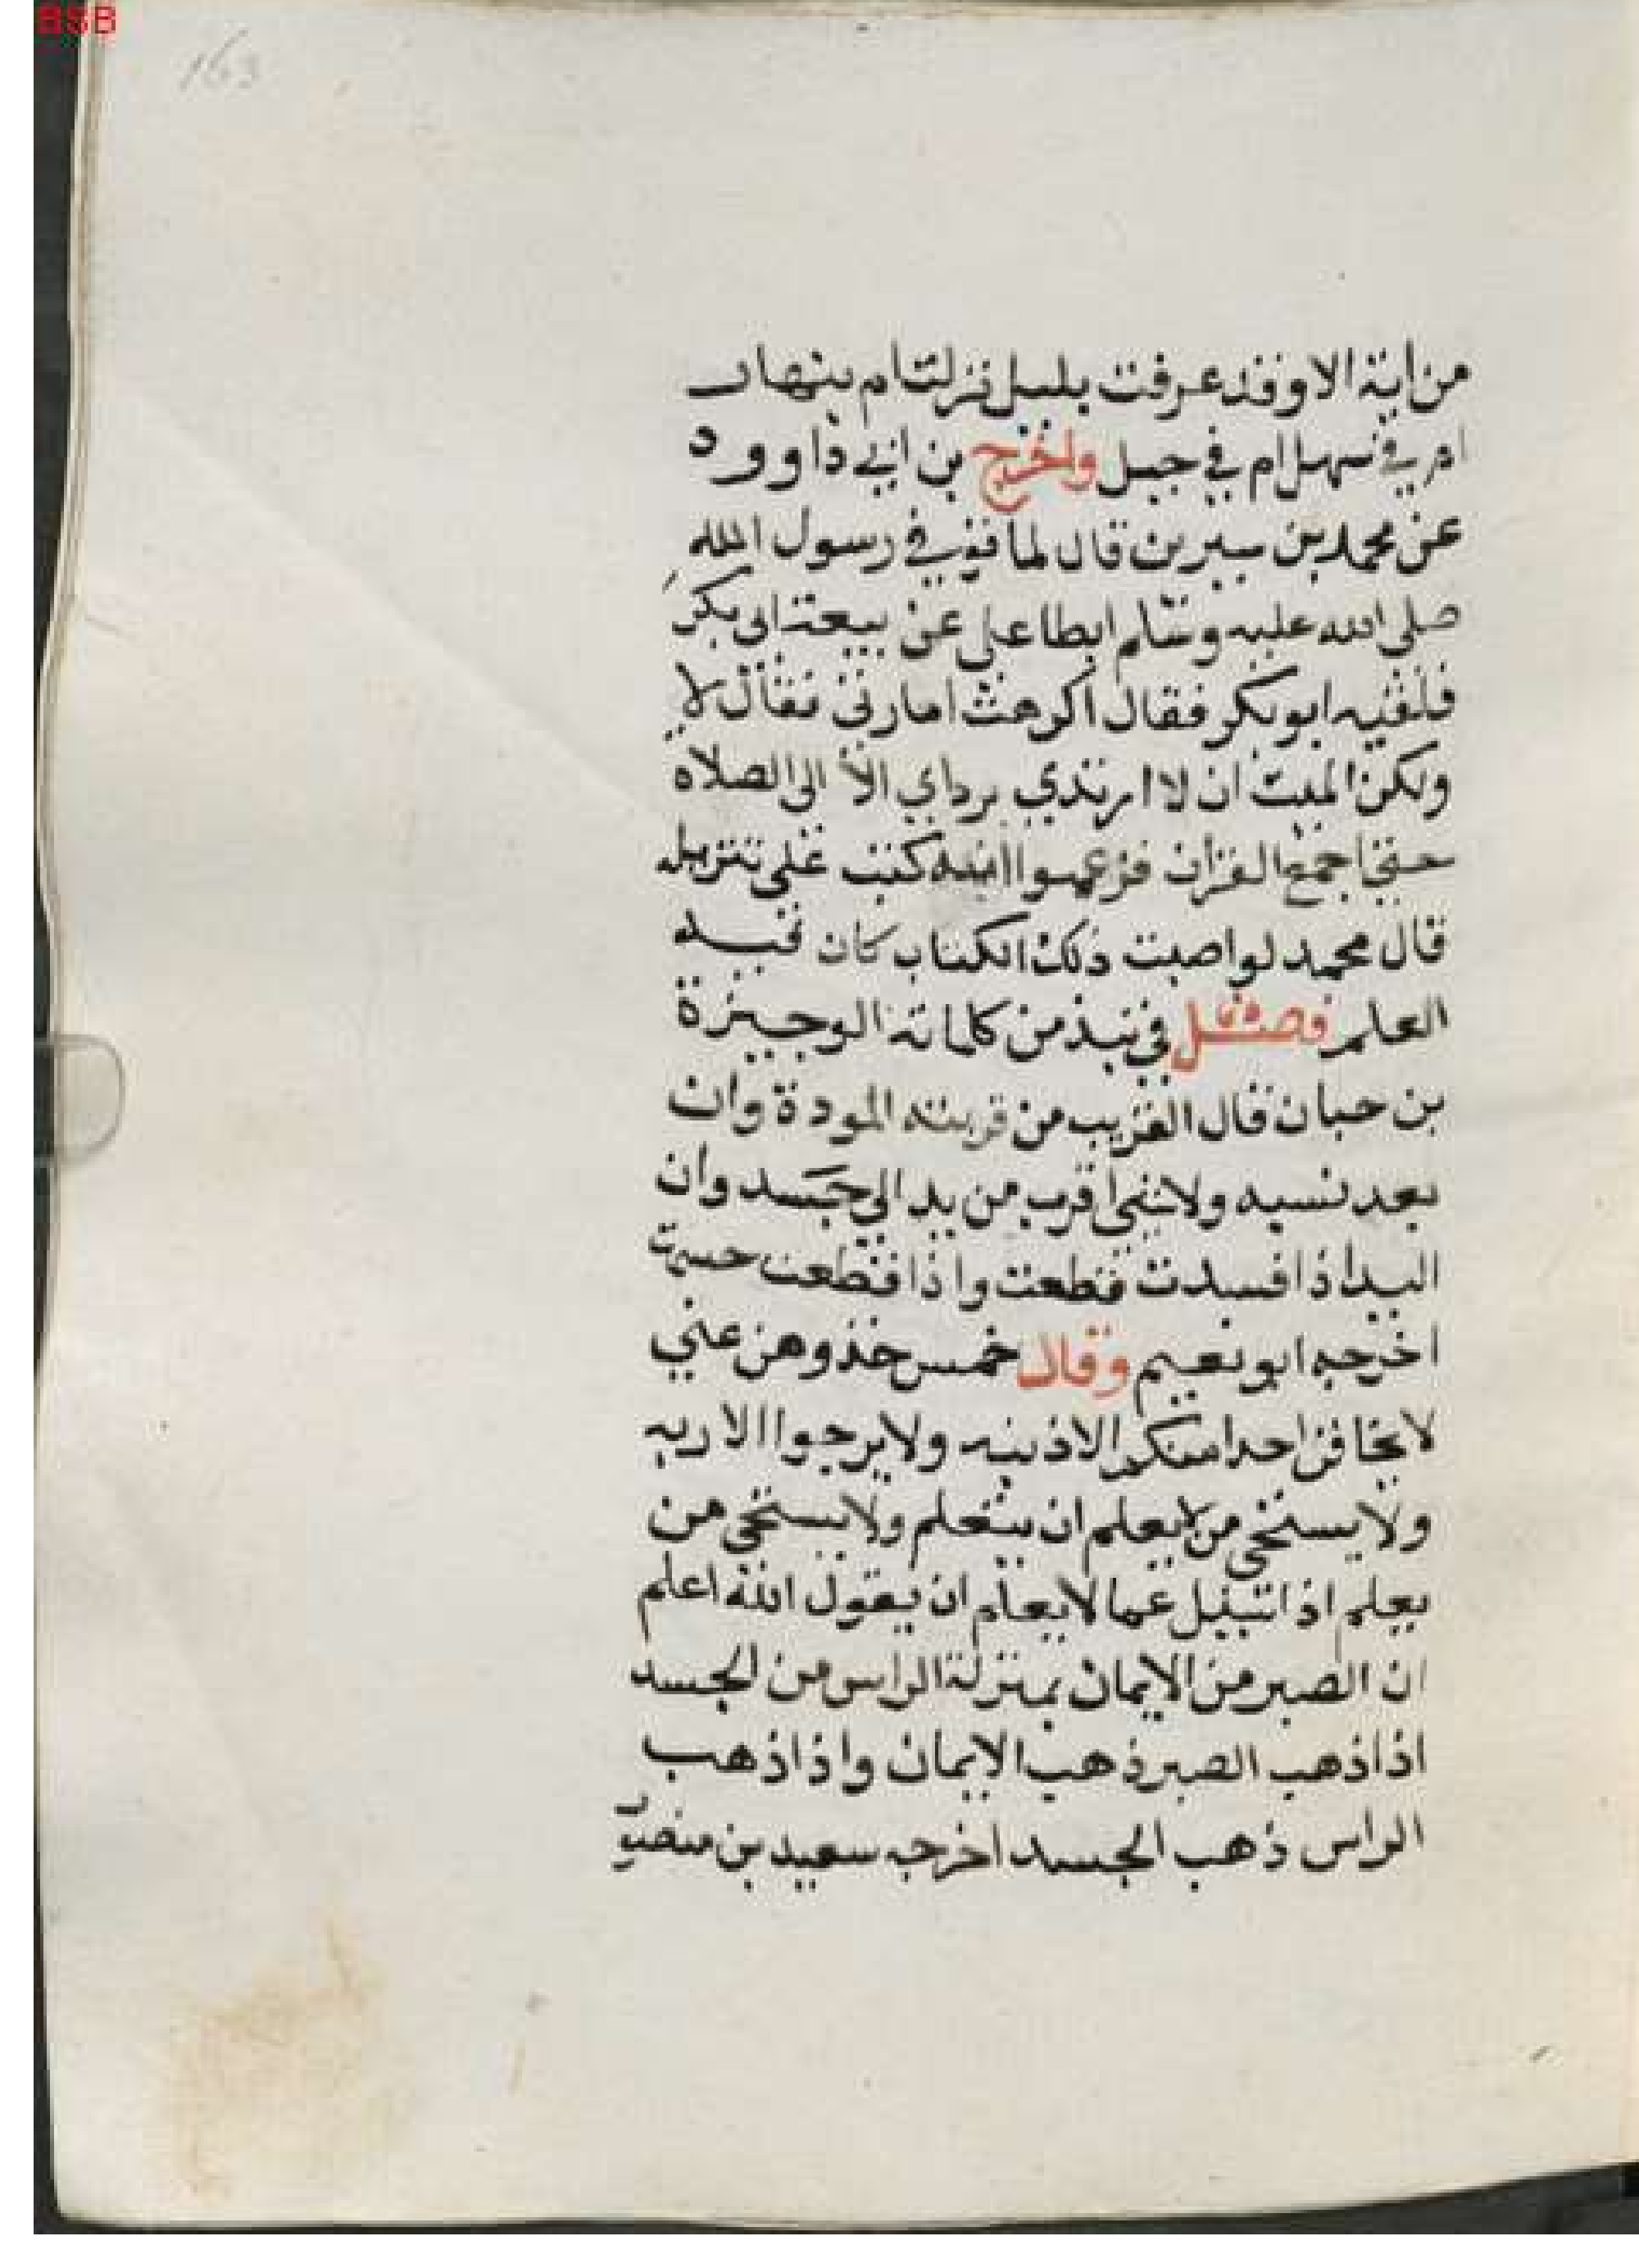 BSB
163
من اية الا وقد عرفت بليل نزلت ام بنهار
ام في سهل ام في جبل واخرج بن ابي داوود
عن محمد بن سيرين قال لما توفي رسول الله
صلى الله عليه وسلم ابطا علي عن بيعة ابي بكر
فلقيه ابو بكر فقال اكرهت امارتى فقال لا
ولكن اليت ان لا ارتدي برداي الا الى الصلاه
حتى اجمع القران فزعموا انه كتب على تنزيله
قال محمد لو اصبت ذلك الكتاب كان فيه
العلم فصل في نبذ من كلماته الوجيزة
بن حبان قال القريب من قربته المودة وان
بعد نسبه ولا شى اقرب من يد الي جسد وان
اليد اذا فسدت قطعت واذا قطعت حسمت
اخرجه ابو نعيم وقال خمس خذوهن عني
لا يخافن احدا منكم الا ذنبه ولا يرجوا الا ربه
ولا يستحى من لا يعلم ان يتعلم ولا يستحي من
يعلم اذا سيل عما لا يعلم ان يقول الله اعلم
ان الصبر من الايمان بمنزلة الراس من الجسد
اذا ذهب الصبر ذهب الايمان واذا ذهب
الراس ذهب الجسد اخرجه سعيد بن منصور